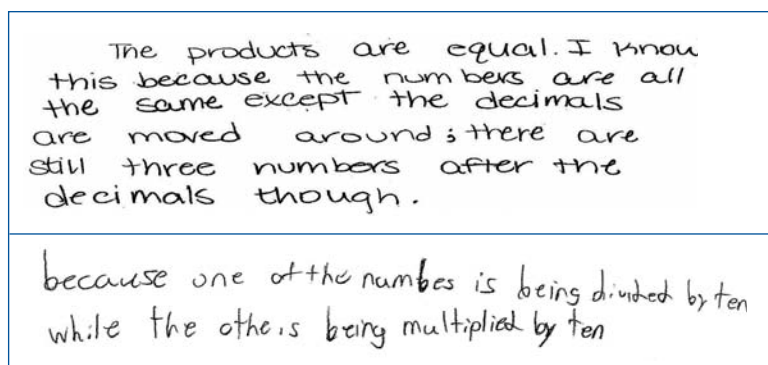 The products are equal. I know
this because the numbers are all
the same except the decimals
are moved around; there are
still three numbers after the
decimals though.
because one of the numbes is being divided by ten
while the othe is being multiplied by ten